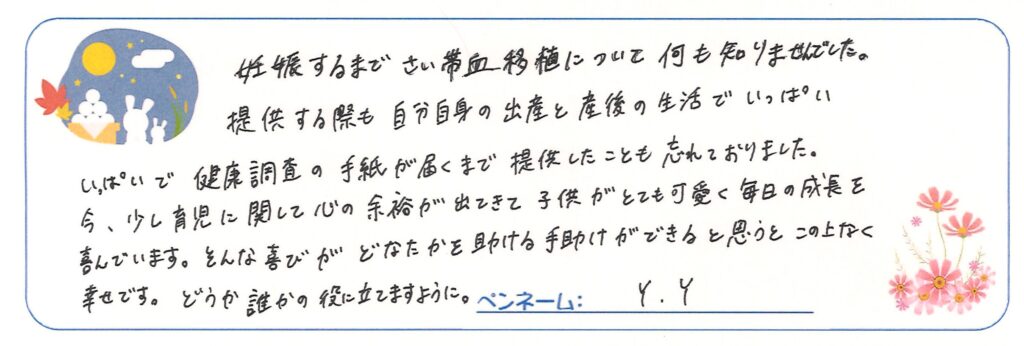 妊娠するまで さい帯血移植について 何も知りませんでした。
提供する際も 自分自身の出産と産後の生活でいっぱい
いっぱいで 健康調査の手紙が届くまで 提供したことも 忘れておりました。
今、少し育児に関して心の余裕が出てきて 子供がとても可愛く毎日の成長を
喜んでいます。そんな喜びが どなたかを助ける手助けができると思うと この上なく
幸せです。 どうか誰かの役に立てますように。 ペンネーム: Y.Y